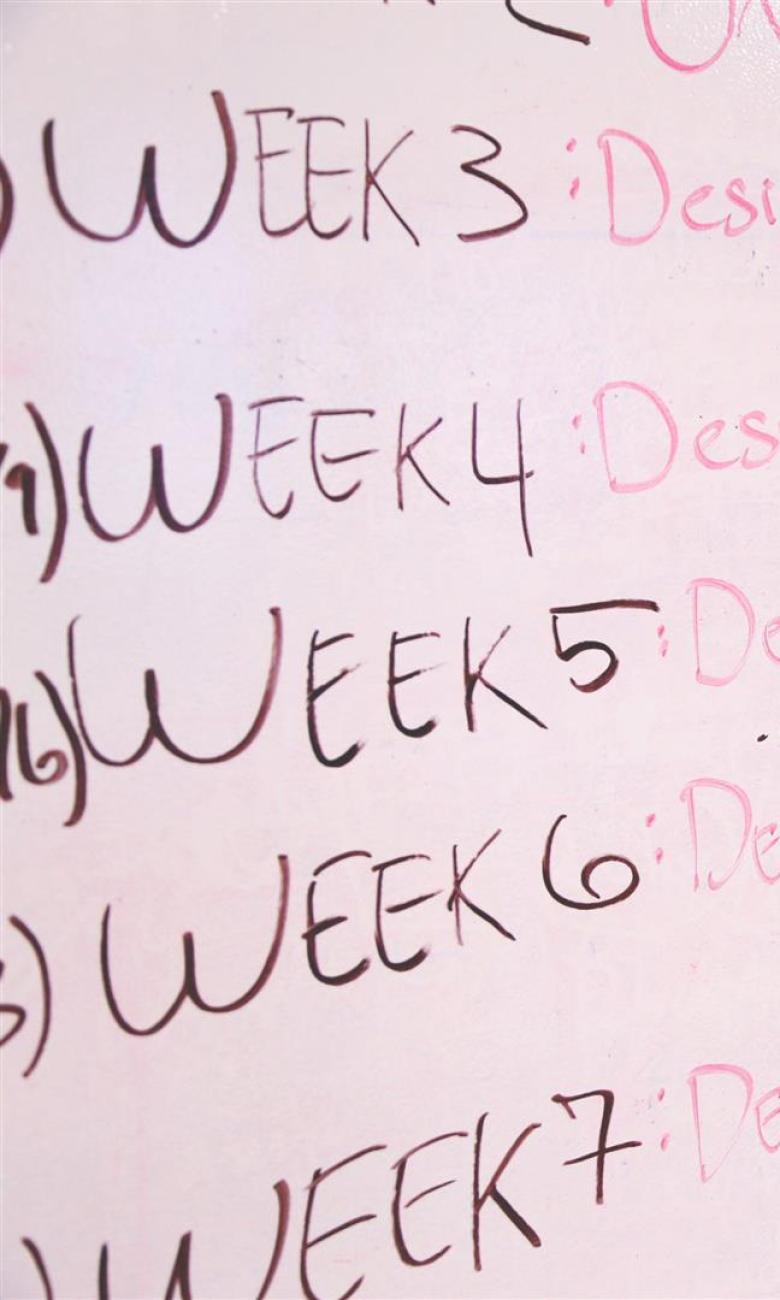 ) WEEK 3 : Desi
9) WEEK 4 : Des
16) WEEK 5 : De
) WEEK 6 : De
) WEEK 7 : De